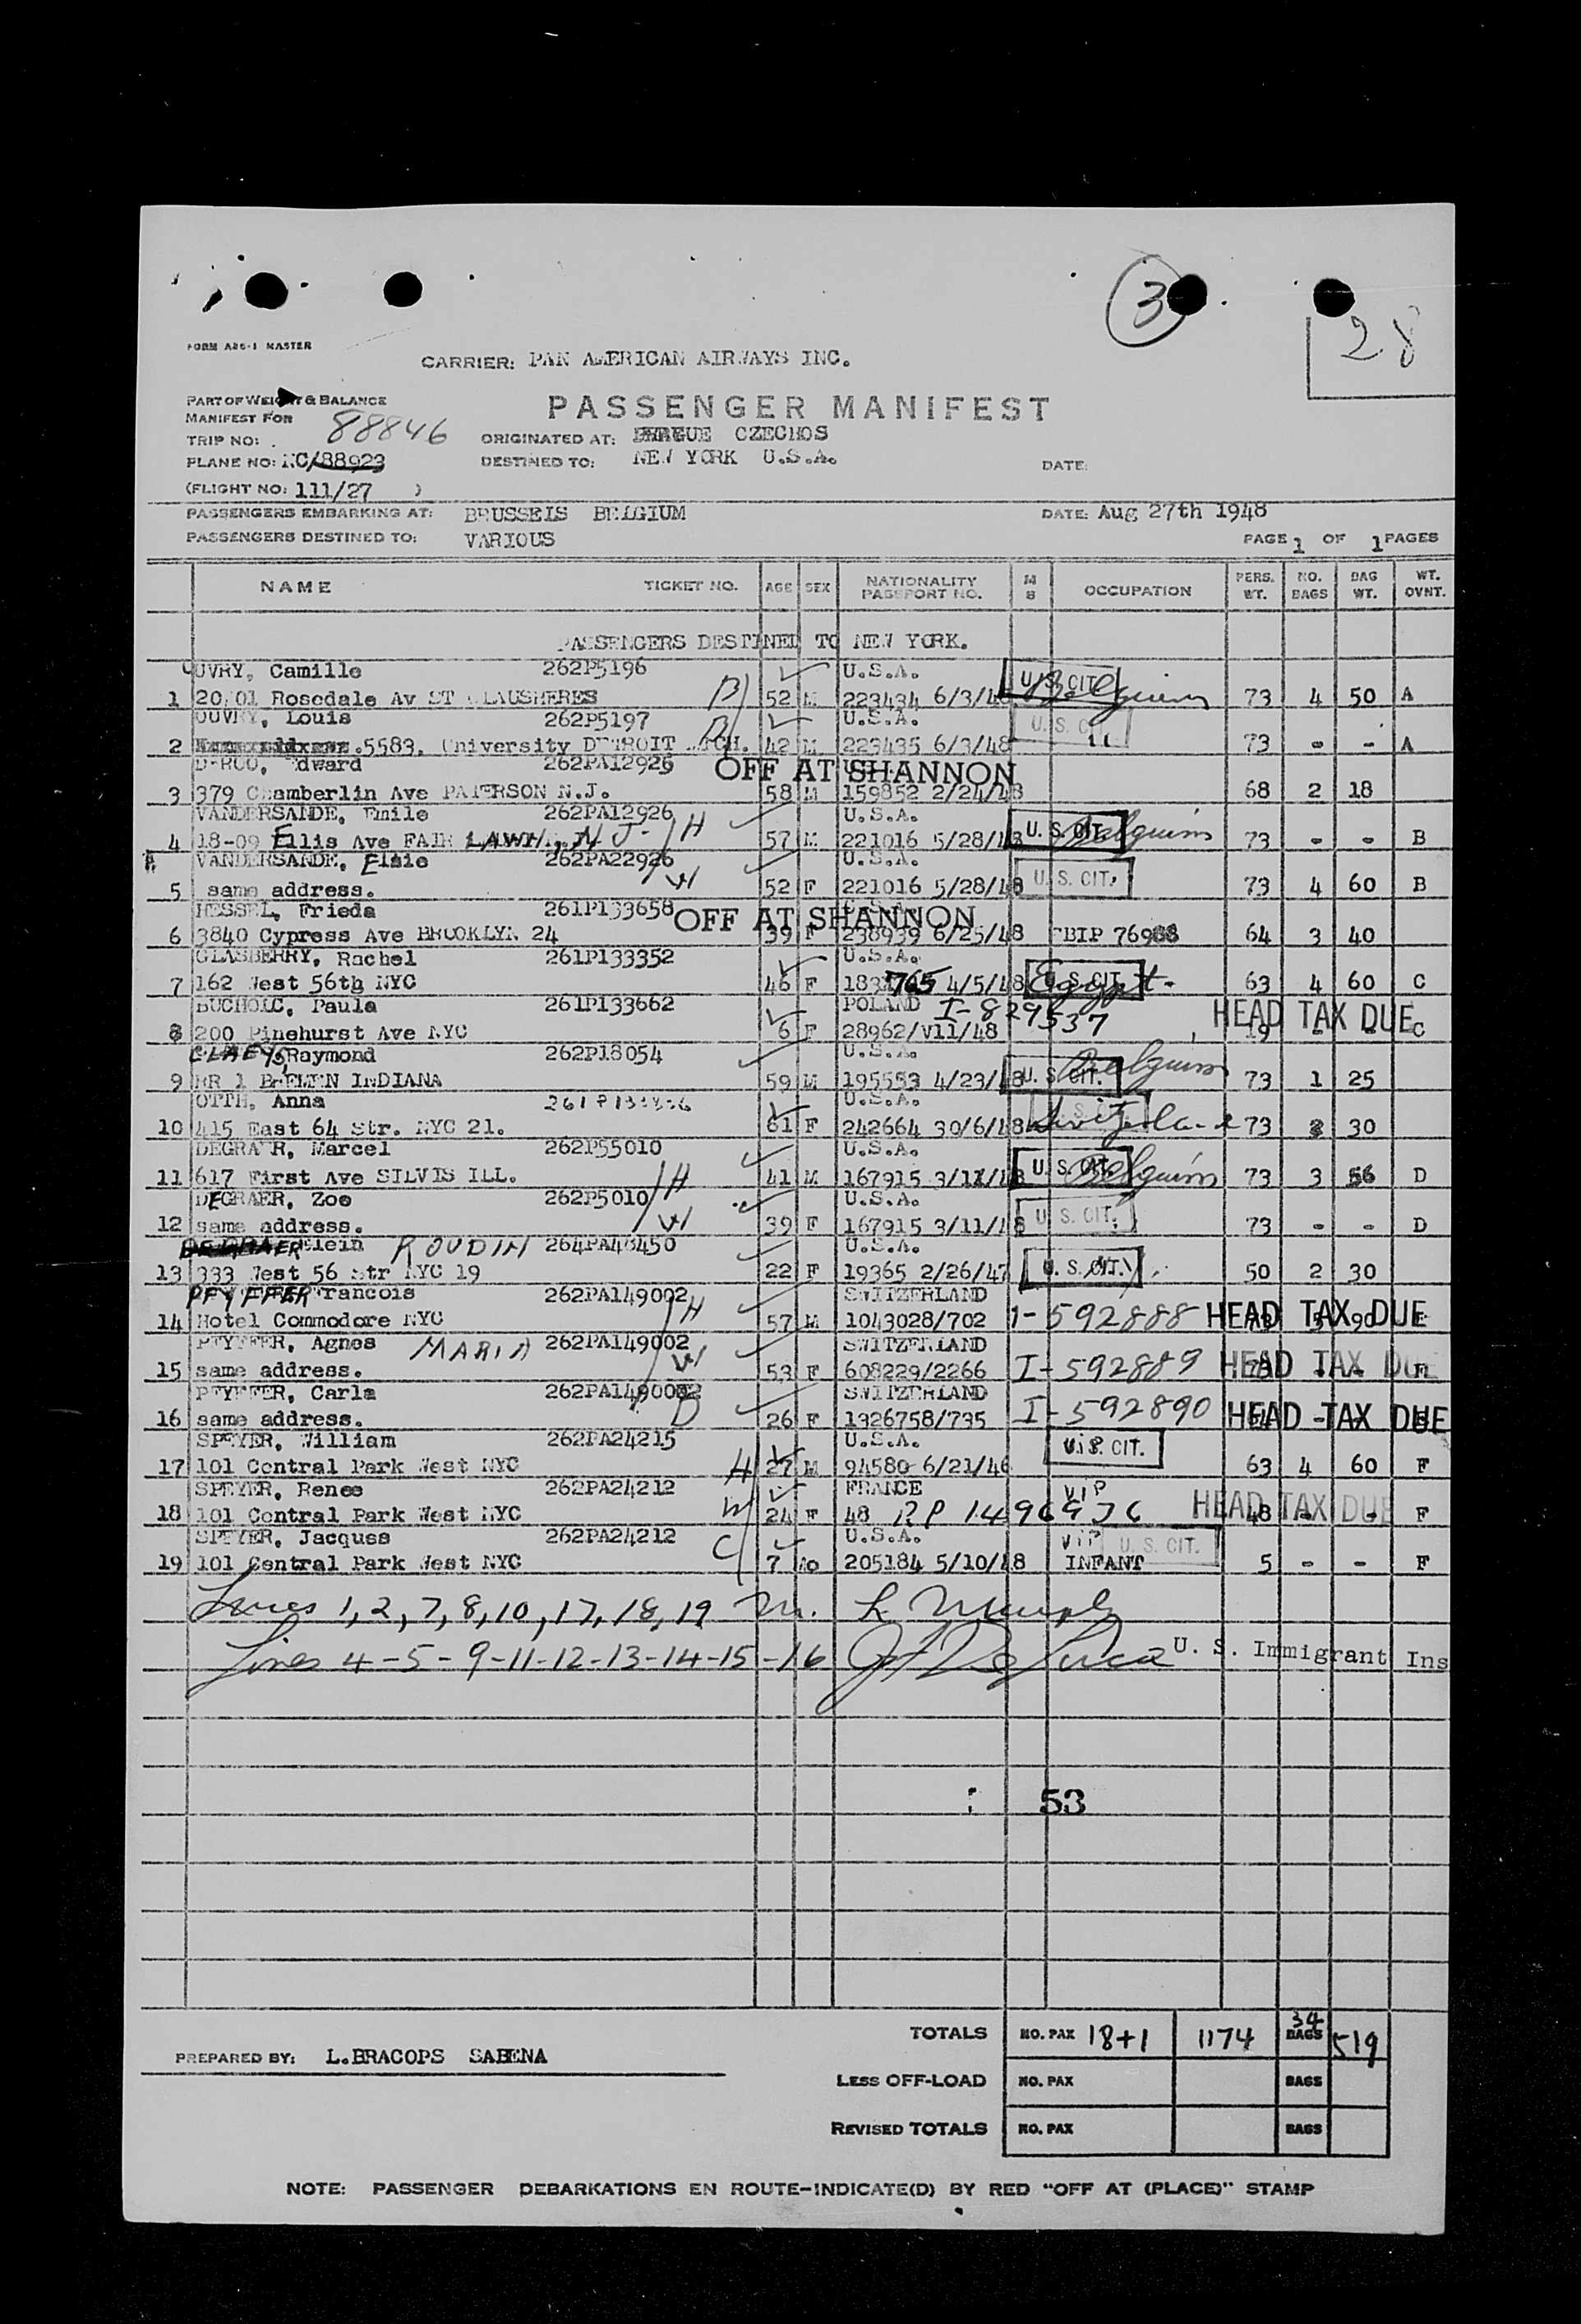 3
28
FORM A86-1 MASTER
CARRIER: PAN AMERICAN AIRWAYS INC.
PART OF WEIGHT & BALANCE
MANIFEST FOR
PASSENGER MANIFEST
TRIP NO: 88846
ORIGINATED AT: PRAGUE CZECHOS
PLANE NO: NC/88923
DESTINED TO: NEW YORK U.S.A.
DATE:
(FLIGHT NO: 111/27 )
PASSENGERS EMBARKING AT: BRUSSELS BELGIUM DATE: Aug 27th 1948
PASSENGERS DESTINED TO: VARIOUS PAGE 1 OF 1 PAGES
NAME TICKET NO. AGE SEX NATIONALITY PASSPORT NO. M S OCCUPATION PERS. WT. NO. BAGS BAG WT. WT. OVNT.
PASSENGERS DESTINED TO NEW YORK.
OUVRY, Camille 262P5196 U.S.A. U.S. CIT.
1 Rosedale Av ST B 52 M 223434 6/3/48 Belgium 73 4 50 A
OUVRY, Louis 262P5197 U.S.A. U.S. CIT.
2 5583, University DETROIT MICH. B 42 M 223435 6/3/48 " 73 - - A
Edward 262PA12926 OFF AT SHANNON
3 379 Chamberlin Ave PATERSON N.J. 58 M 159852 2/24/48 68 2 18
VANDERSANDE, Emile 262PA12926 U.S.A. U.S. CIT.
4 18-09 Ellis Ave FAIR LAWN, N J- H 57 M 221016 5/28/48 Belgium 73 - - B
VANDERSANDE, Elsie 262PA22926 U.S.A. U.S. CIT.
5 same address. W 52 F 221016 5/28/48 73 4 60 B
HESSEL, Frieda 261P133658 OFF AT SHANNON
6 3840 Cypress Ave BROOKLYN 24 39 F 238939 6/25/48 64 3 40
GLASBERRY, Rachel 261P133352 U.S.A. U.S. CIT.
7 162 West 56th NYC 46 F 183765 4/5/48 Egypt- 63 4 60 C
BUCHOLC, Paula 261P133662 POLAND I-829537 HEAD TAX DUE
8 200 Pinehurst Ave NYC 6 F 28962/V11/48 19 - - C
CLAEYS, Raymond 262P18054 U.S.A. U.S. CIT.
9 RR 1 BREMEN INDIANA 59 M 195553 4/23/48 Belgium 73 1 25
OTTH, Anna U.S.A. U.S. CIT.
10 415 East 64 Str. NYC 21. 61 F 242664 30/6/48 73 2 30
DEGRAER, Marcel 262P55010 U.S.A. U.S. CIT.
11 617 First Ave SILVIS ILL. H 41 M 167915 3/11/48 Belgium 73 3 56 D
DEGRAER, Zoe 262P5010 U.S.A. U.S. CIT.
12 same address. W 39 F 167915 3/11/48 73 - - D
ROUDIN 264PA48450 U.S.A. U.S. CIT.
13 333 West 56 Str NYC 19 22 F 19365 2/26/47 50 2 30
PFYFFER Francois 262PA149002 SWITZERLAND
14 Hotel Commodore NYC H 57 M 1043028/702 I-592888 HEAD TAX DUE 90
PFYFFER, Agnes MARIA 262PA149002 SWITZERLAND
15 same address. W 53 F 608229/2266 I-592889 HEAD TAX DUE
PFYFFER, Carla 262PA149002 SWITZERLAND
16 same address. D 26 F 1326758/735 I-592890 HEAD TAX DUE
SPEYER, William 262PA24215 U.S.A. U.S. CIT.
17 101 Central Park West NYC H 27 M 94580 6/21/46 63 4 60 F
SPEYER, Renee 262PA24212 FRANCE VIP
18 101 Central Park West NYC W 24 F 48 HEAD TAX DUE 48 - - F
SPEYER, Jacques 262PA24212 U.S.A. VIP U.S. CIT.
19 101 Central Park West NYC C 7 Mo 205184 5/10/48 INFANT 5 - - F
Lines 1,2,7,8,10,17,18,19
Lines 4-5-9-11-12-13-14-15-16 U. S. Immigrant Ins
53
TOTALS NO. PAX 18+1 1174 34 BAGS 519
PREPARED BY: L.BRACOPS SABENA
LESS OFF-LOAD NO. PAX BAGS
REVISED TOTALS NO. PAX BAGS
NOTE: PASSENGER DEBARKATIONS EN ROUTE-INDICATE(D) BY RED "OFF AT (PLACE)" STAMP